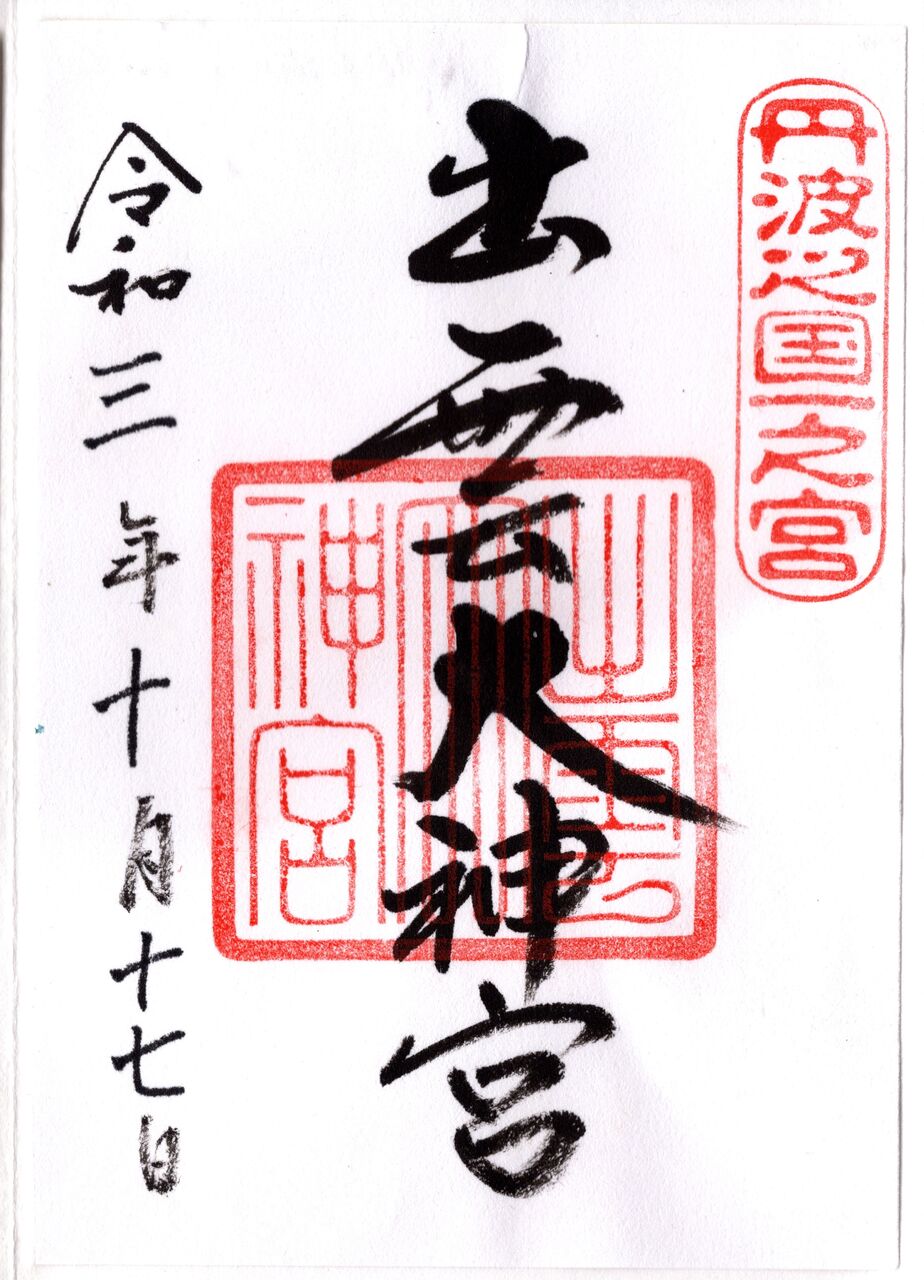 丹波之国一之宮
出雲大神宮
出雲大神宮
令和三年十月十七日